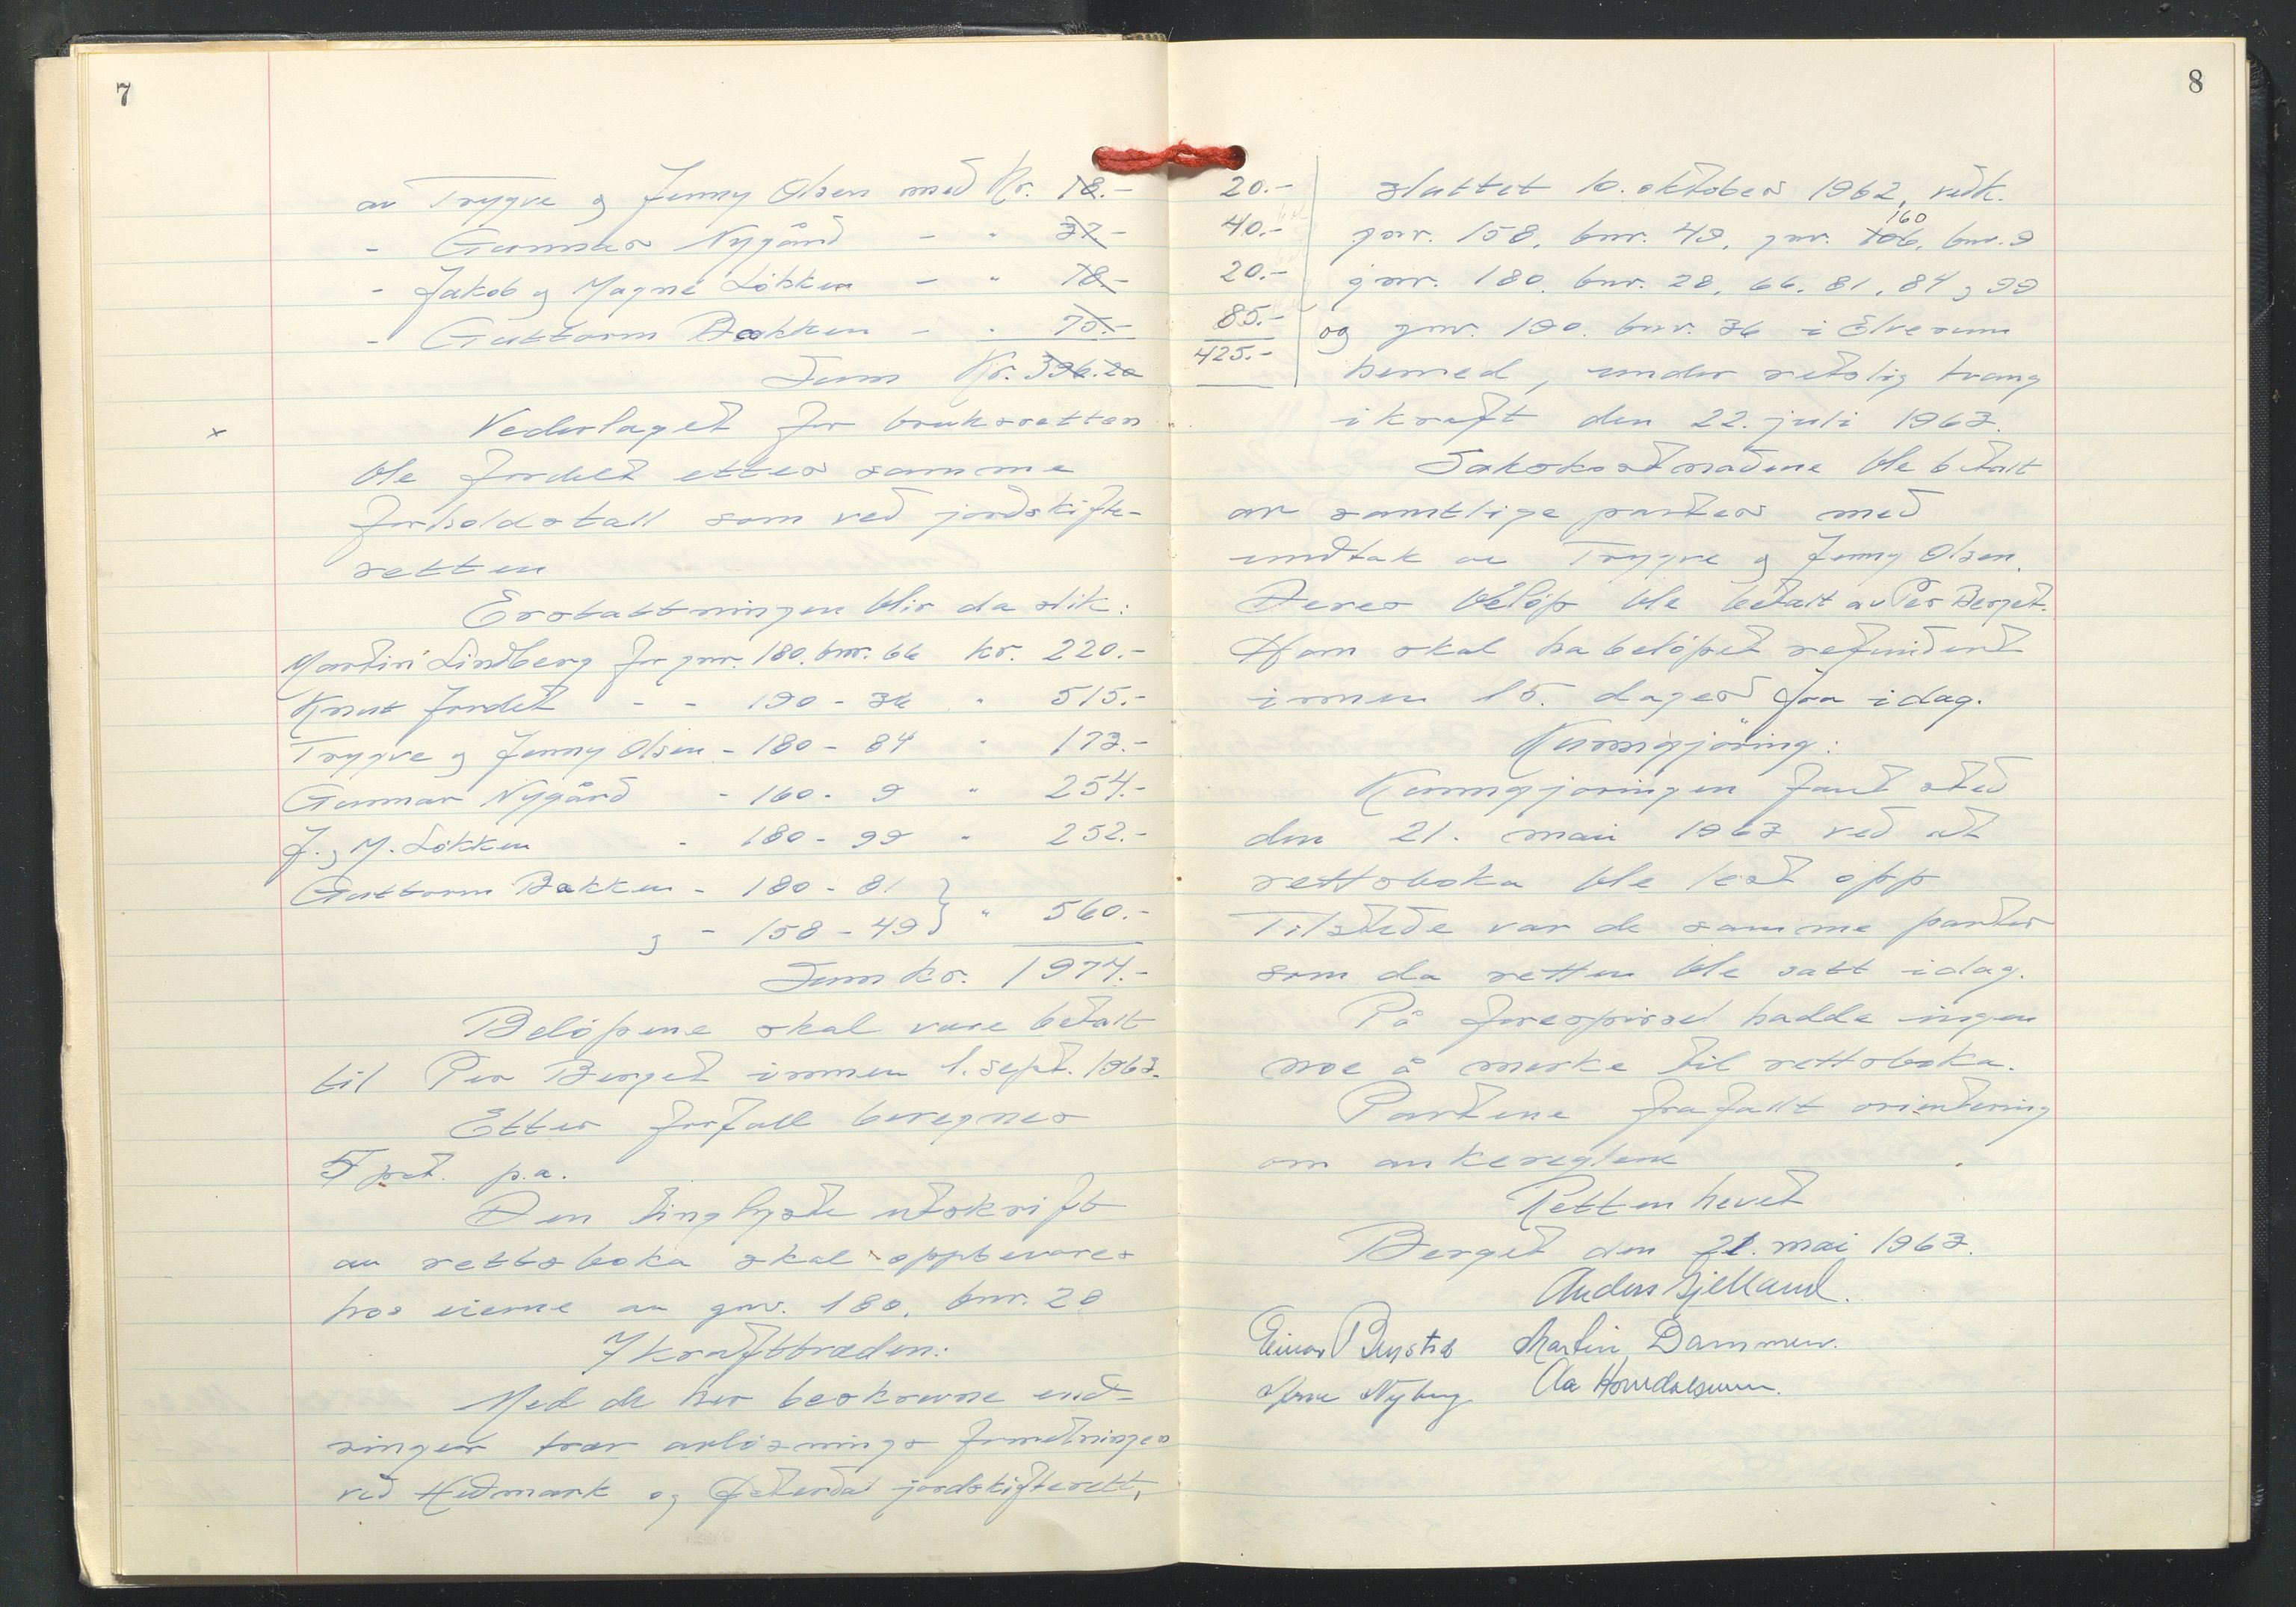 7
av Trygve og Jenny Olsen med Kr. 18.- 20.-
- Gunnar Nygård - " 37.- 40.-
- Jakob og Magne Løkken - " 18.- 20.-
- Guttorm Bakken - " 75.- 85.-
Sum Kr. 396.20 425.-
x Vederlaget for bruksretten
ble fordelt etter samme
forholdstall som ved jordskifte-
retten
Erstattningen blir da slik:
Martin Lindberg for gnr. 180. bnr. 66 kr. 220.-
Knut Jordet - - 190 - 36 " 515.-
Trygve og Jenny Olsen - 180 - 84 " 173.-
Gunnar Nygård - 160 - 9 " 254.-
J. og M. Løkken - 180 - 99 " 252.-
Guttorm Bakken - 180 - 81
og - 158 - 49 } " 560.-
Sum kr. 1974.-
Beløpene skal være betalt
til Per Berget innen 1. sept. 1963.
Etter forfall beregnes
5 pct. p.a.
Den tinglyste utskrift
av rettsboka skal oppbevares
hos eierne av gnr. 180, bnr. 28
Ikrafttræden:
Med de her beskrevne end-
ringer trær avløsnings forretningen
ved Hedmark og Østerdal jordskifterett,
8
sluttet 10. oktober 1962, vedk.
gnr. 158, bnr. 49, gnr. 106, 160 bnr. 9
gnr. 180. bnr. 28, 66. 81, 84 og 99
og gnr. 190. bnr. 36 i Elverum
herred, under rettslig tvang
i kraft den 22. juli 1963.
Sakskostnadene ble betalt
av samtlige parter med
undtak av Trygve og Jenny Olsen.
Deres beløp ble betalt av Per Berget.
Han skal ha beløpet refundert
innen 15. dager fra idag.
Kunngjøring:
Kunngjøringen fant sted
den 21. mai 1963 ved at
rettsboka ble lest opp
Tilstede var de samme parter
som da retten ble satt idag.
På forespørsel hadde ingen
noe å merke til rettsboka.
Partene frafallt orientering
om ankereglene
Retten hevet
Berget den 21. mai 1963.
Anders Gjelland.
Einar Martin Dammen.
Nyberg Aa